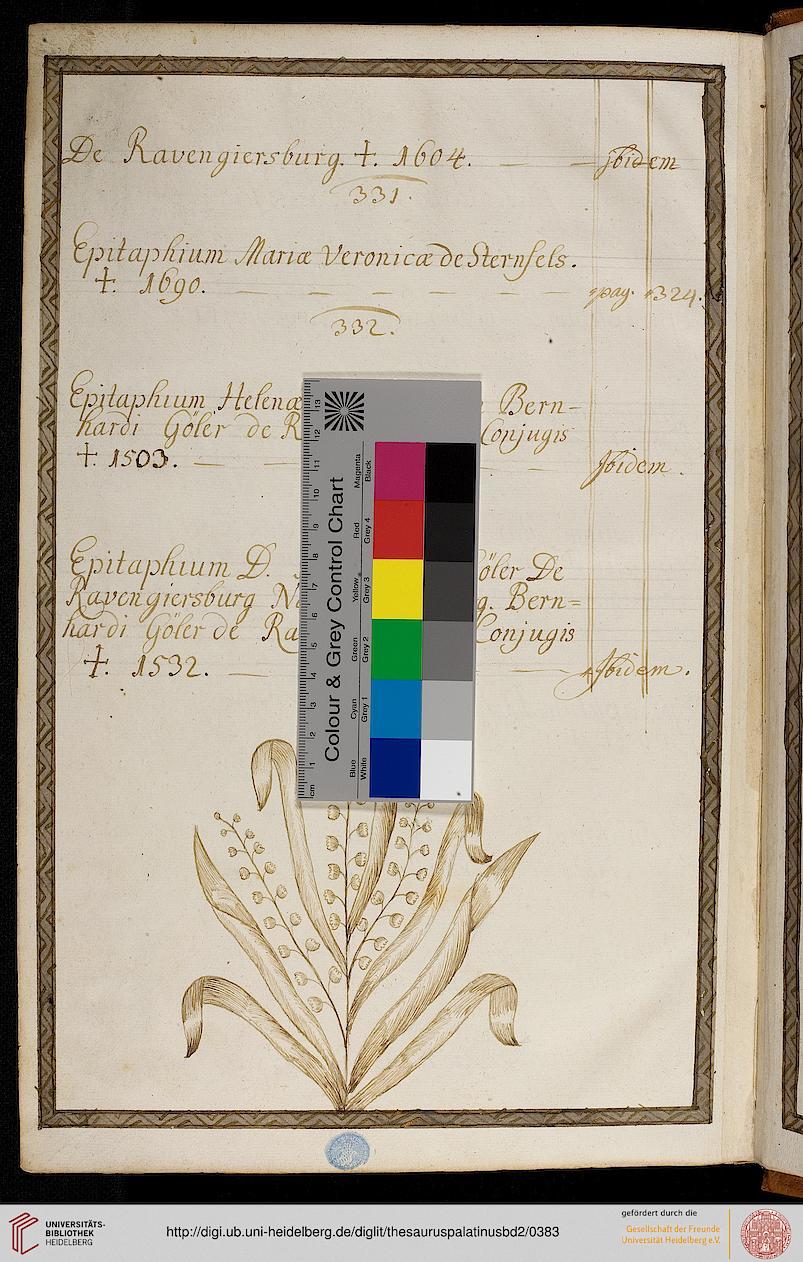 De Ravengiersburg. †. 1604. — — Jbidem
331.
Epitaphium Mariæ Veronicæ de Sternfels.
†. 1690. — — — — — — pag. 324.
332.
Epitaphium Helenæ Bern-
hardi Göler de R Conjugis
†. 1503. — — Jbidem.
Epitaphium D. öler De
Ravengiersburg N g. Bern=
hardi Göler de Ra Conjugis
†. 1532. — — Jbidem.
Colour & Grey Control Chart
Magenta Black
Red Grey 4
Yellow Grey 3
Green Grey 2
Cyan Grey 1
Blue White
cm 1 2 3 4 5 6 7 8 9 10 11 12 13
UNIVERSITÄTS-
BIBLIOTHEK
HEIDELBERG
http://digi.ub.uni-heidelberg.de/diglit/thesauruspalatinusbd2/0383
gefördert durch die
Gesellschaft der Freunde
Universität Heidelberg e.V.